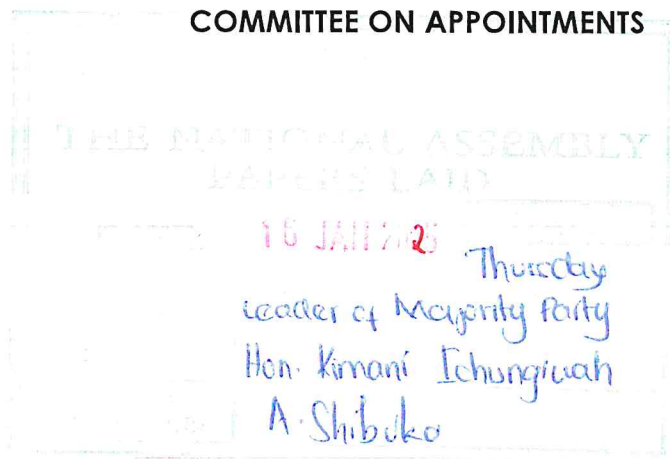 COMMITTEE ON APPOINTMENTS
THE NATIONAL ASSEMBLY
PAPERS LAID
16 JAN 2025
Thursday
Leader of Majority Party
Hon. Kimani Ichungiwah
A. Shibuko